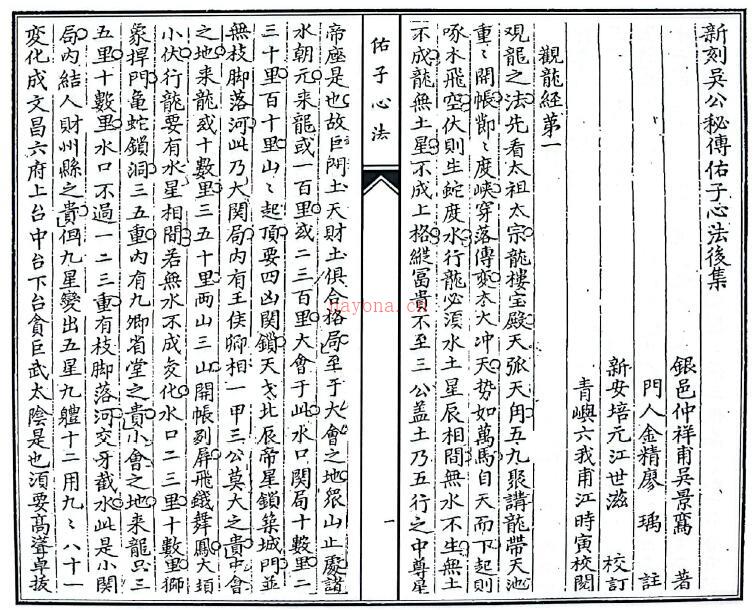 新刻吳公秘傳佑子心法後集
銀邑仲祥甫吳景鸞 著
門人金精廖 瑀 註
新安培元江世滋 校訂
青嶼六我甫江時寅校閱
觀龍經第一
观龍之法先看太祖太宗龍樓宝殿天弧天角五九聚講龍帶天池
重〻開帳節〻度峽穿落傳变木大冲天势如萬馬自天而下起則
啄木飛空伏則生蛇度水行龍必須水土星辰相間無水不生無土
不成龍無土星不成上格縱冨貴不至三公盖土乃五行之中尊星
佑子心法
一
帝座是也故巨門土天財土俱合格局至于大會之地衆山止處諸
水朝元来龍或一百里或二三百里大會于此水口関局十數里二
三十里百十里山〻起頂要四凶関鎖天戈北辰帝星鎖築城門並
無枝脚落河此乃大関局内有王侯卿相一甲三公莫大之貴中會
之地来龍或十數里三五十里两山三山開帳列屏飛鵝舞鳳大頓
小伏行龍要有水星相間若無水不成变化水口二三里十數里獅
象捍門龜蛇鎖洞三五重内有九卿省堂之貴小會之地来龍只三
五里十數里水口不過一二三重有枝脚落河交牙截水此是小関
局内結人財州縣之貴但九星變出五星九體十二用九〻八十一
变化成文昌六府上台中台下台貪巨武太陰是也須要高聳卓拔
nayona.cn